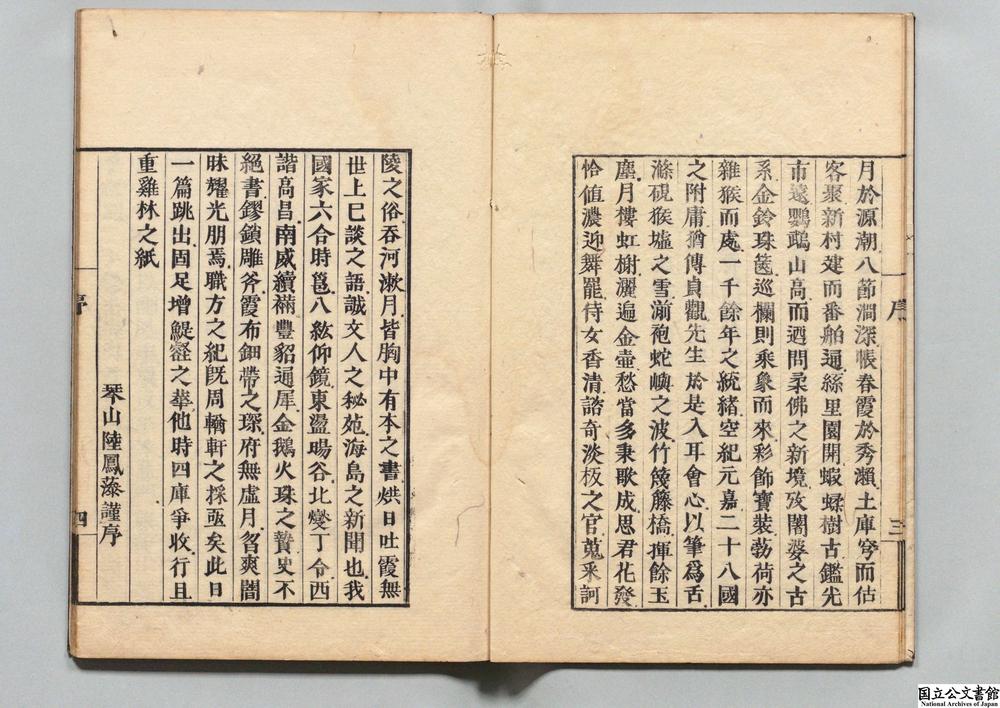 月於源潮八節澗深帳春霞於秀瀨土庫穹而估
客聚新村建而番舶通絲里園開蝦蟆樹古鑑光
市遠鸚鵡山高而迺問柔佛之新境攷闍婆之古
系金鈴珠篋巡欄則乘象而來彩飾寶裝勃荷亦
雜猴而處一千餘年之統緒空紀元嘉二十八國
之附庸猶傳貞觀先生於是入耳會心以筆爲舌
滌硯猴墟之雪湔袍蛇嶼之波竹篾藤橋揮餘玉
塵月樓虹榭灑遍金壺愁當多秉歌成思君花發
恰值濃迎舞罷侍女香清諮奇淡板之官蒐采訶
序
三
陵之俗吞河漱月皆胸中有本之書烘日吐霞無
世上巳談之語誠文人之秘苑海島之新聞也我
國家六合時邕八紘仰鏡東盪暘谷北燮丁令西
諧高昌南威續襧豐貂通犀金鵝火珠之贄史不
絕書鏐鎖雕斧霞布鈿帶之琛府無虛月曶爽闇
昧耀光朋焉職方之紀既周輶軒之採亟矣此日
一篇跳出固足增鯷壑之華他時四庫爭收行且
重雞林之紙
琴山陸鳳藻謹序
序
四
国立公文書館
National Archives of Japan